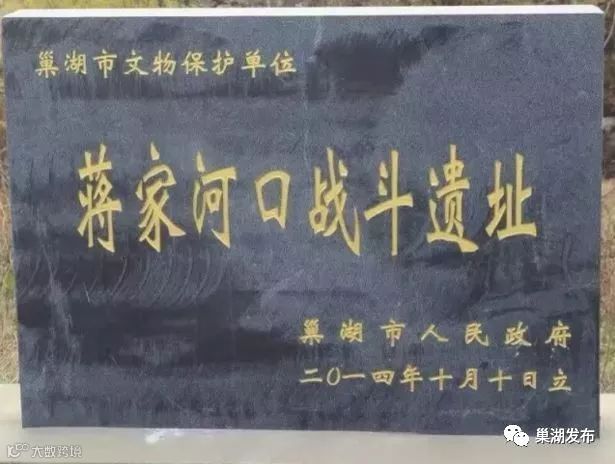 巢湖市文物保护单位
蒋家河口战斗遗址
巢湖市人民政府
二〇一四年十月十日立
巢湖发布
大数跨境